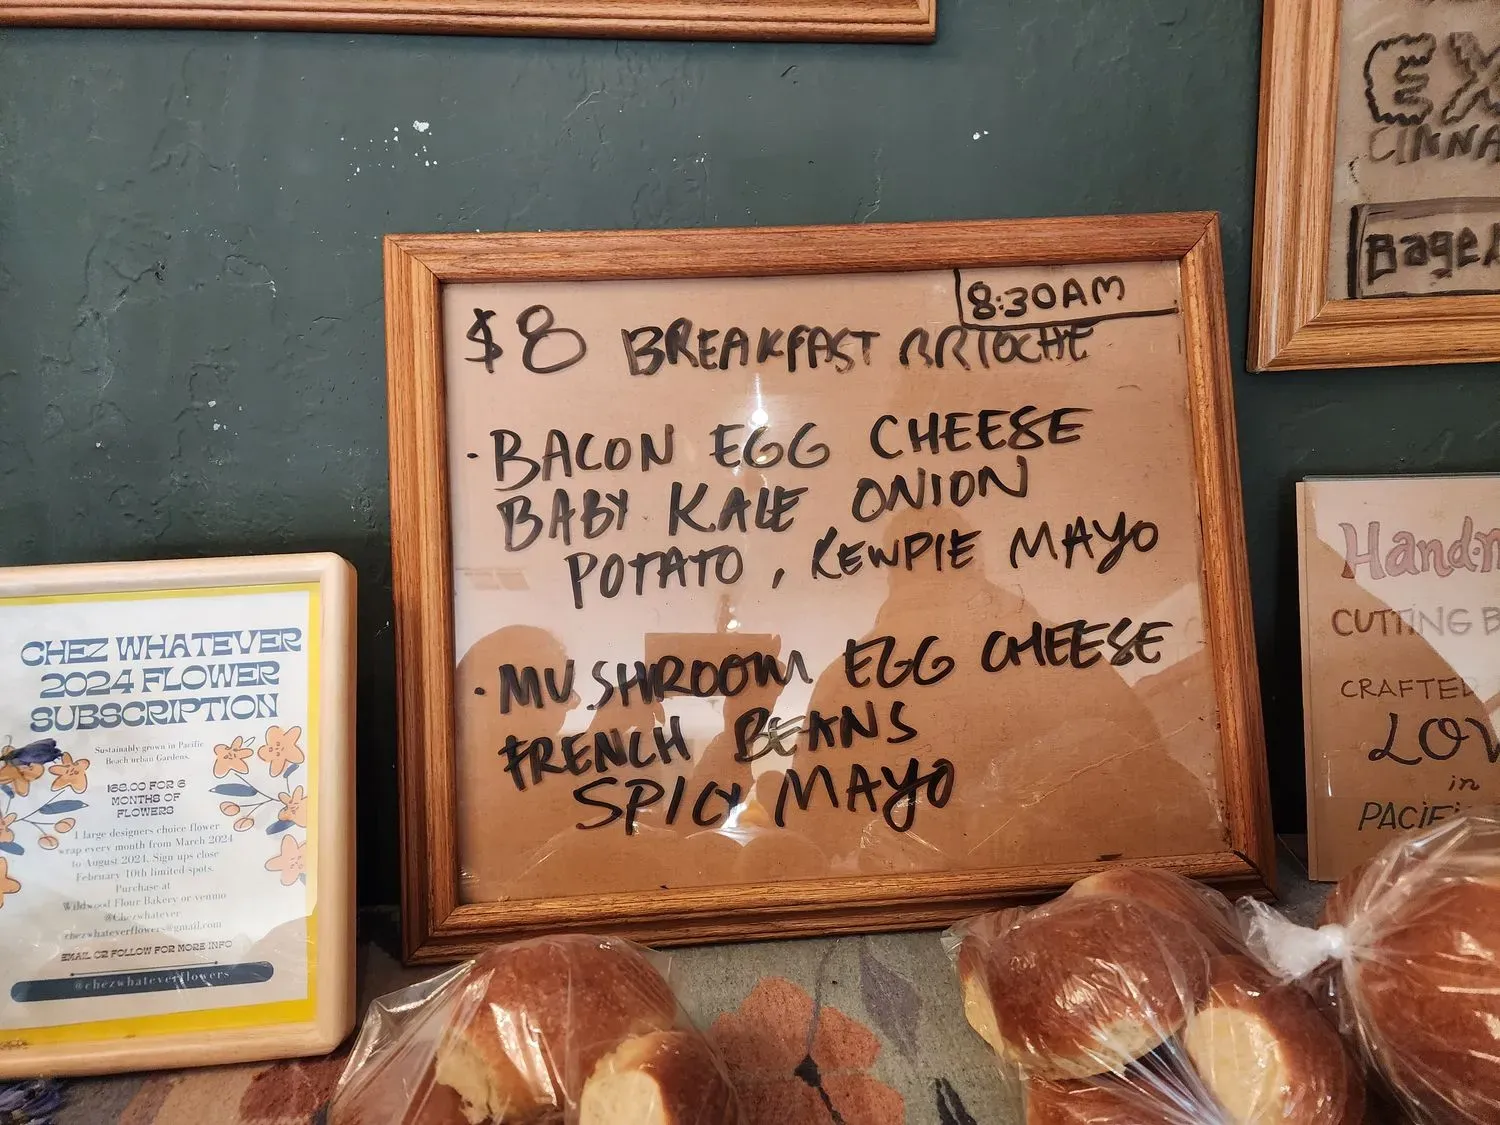 8:30AM
$8 BREAKFAST BRIOCHE
· BACON EGG CHEESE
BABY KALE ONION
POTATO, KEWPIE MAYO
· MUSHROOM EGG CHEESE
FRENCH BEANS
SPICY MAYO
CHEZ WHATEVER
2024 FLOWER
SUBSCRIPTION
Sustainably grown in Pacific
Beach urban Gardens.
FOR 6
MONTHS OF
FLOWERS
1 large designers choice flower
wrap every month from March 2024
to August 2024. Sign ups close
February 10th limited spots.
Purchase at
Wildwood Flour Bakery or venmo
@Chezwhatever
chezwhateverflowers@gmail.com
EMAIL OR FOLLOW FOR MORE INFO
@chezwhateverflowers
EX
CINNA
Bagel
Hand-m
CUTTING B
CRAFTED
LOV
in
PACIFI